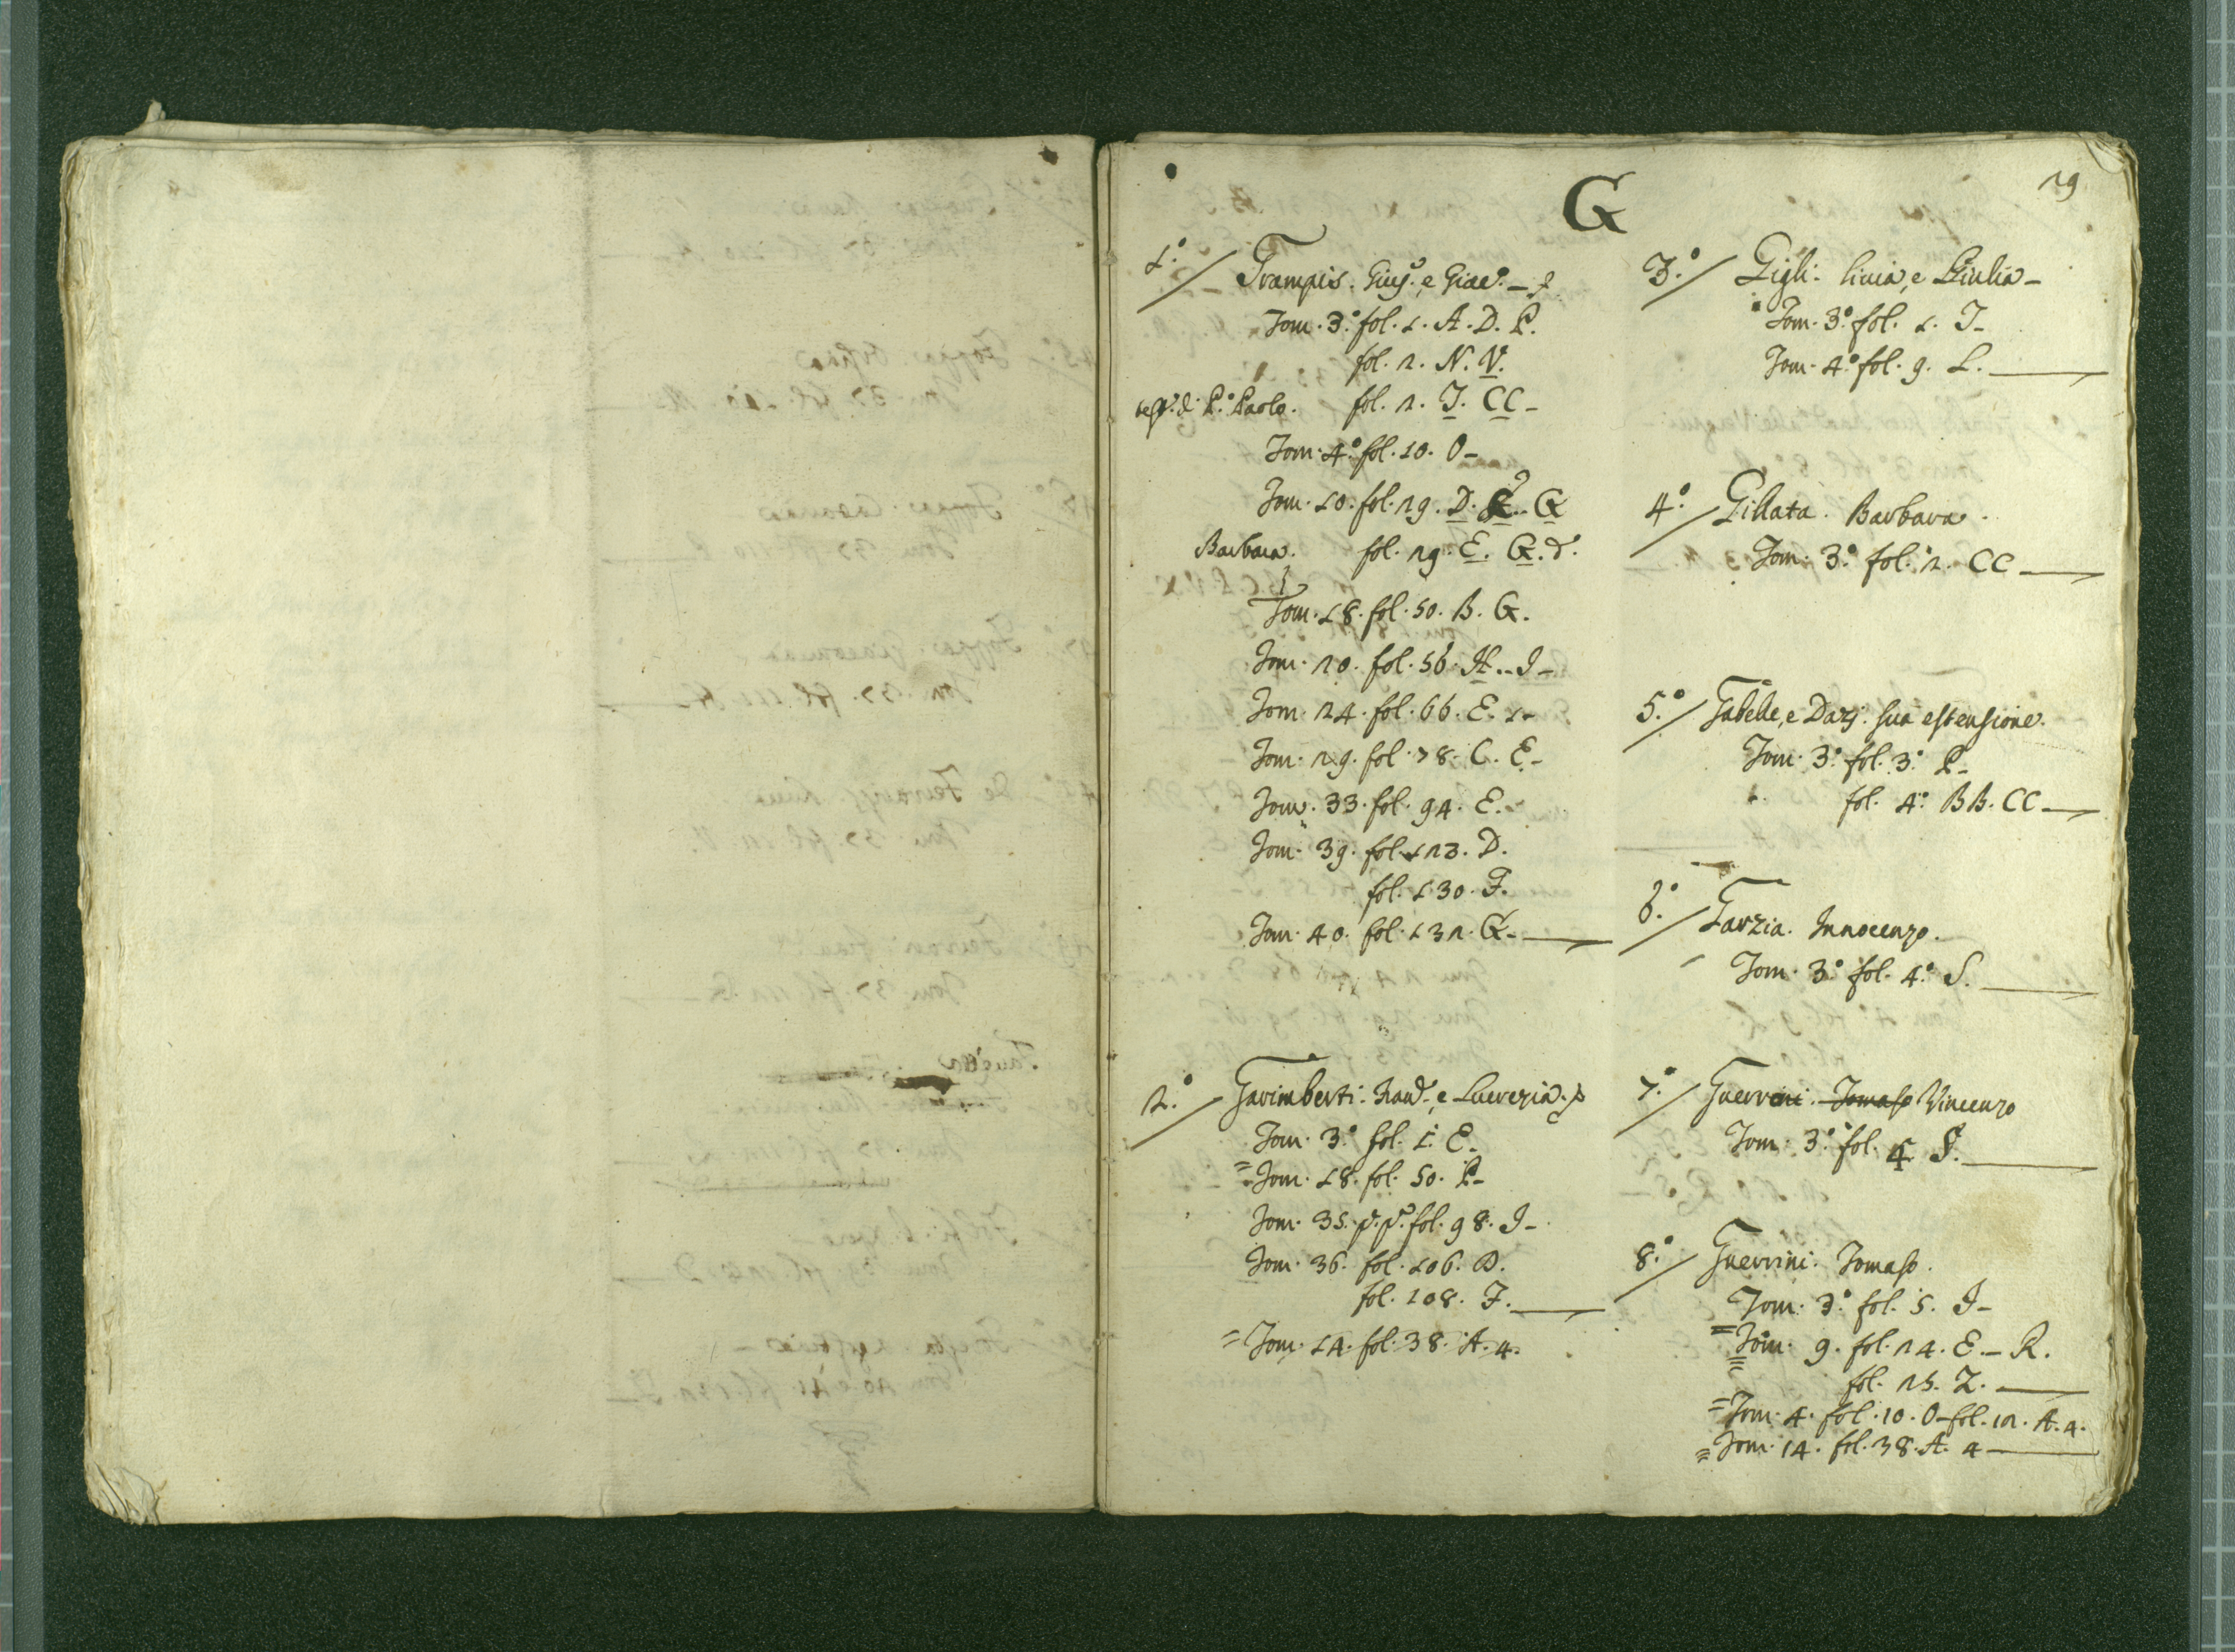 G
29
1.º Grampis. Giuș. e Giac.º
Tom. 3.º fol. 1. A. D. P.
fol. 2. N. V.
P. Paolo. fol. 2. I. CC
Tom. 4.º fol. 10. O
Tom. 10. fol. 29. D. G
Barbara. fol. 29. E. G. d.
Tom. 18. fol. 50. B. G.
Tom. 20. fol. 56. H.. I
Tom. 24. fol. 66. E. 1
Tom. 29. fol. 78. C. E
Tom. 33. fol. 94. E.
Tom. 39. fol. 123. D.
fol. 130. F.
Tom. 40. fol. 132. G
2.º Garimberti. e Lucrezia.
Tom. 3.º fol. 1. E
= Tom. 18. fol. 50. P
Tom. 35. p. p. fol. 98. I
Tom. 36. fol. 106. D.
fol. 108. F.
= Tom. 14. fol. 38. A. 4.
3.º Gigli. Livia, e Giulia
Tom. 3.º fol. 1. I
Tom. 4.º fol. 9. L.
4.º Gillata. Barbara.
Tom. 3.º fol. 2. CC
5.º Gabelle, e Dazj. sua estensione.
Tom. 3.º fol. 3.º P
fol. 4.º BB. CC
6.º Garzia. Innocenzo.
Tom. 3.º fol. 4.º S.
7.º Guerrini. Tomaso Vincenzo
Tom. 3.º fol. 4 S.
8.º Guerrini. Tomaso.
Tom. 3.º fol. 5. I
= Tom. 9. fol. 24. E. R.
fol. 25. Z.
= Tom. 4. fol. 10. O fol. 12. A. 4.
= Tom. 14. fol. 38. A. 4